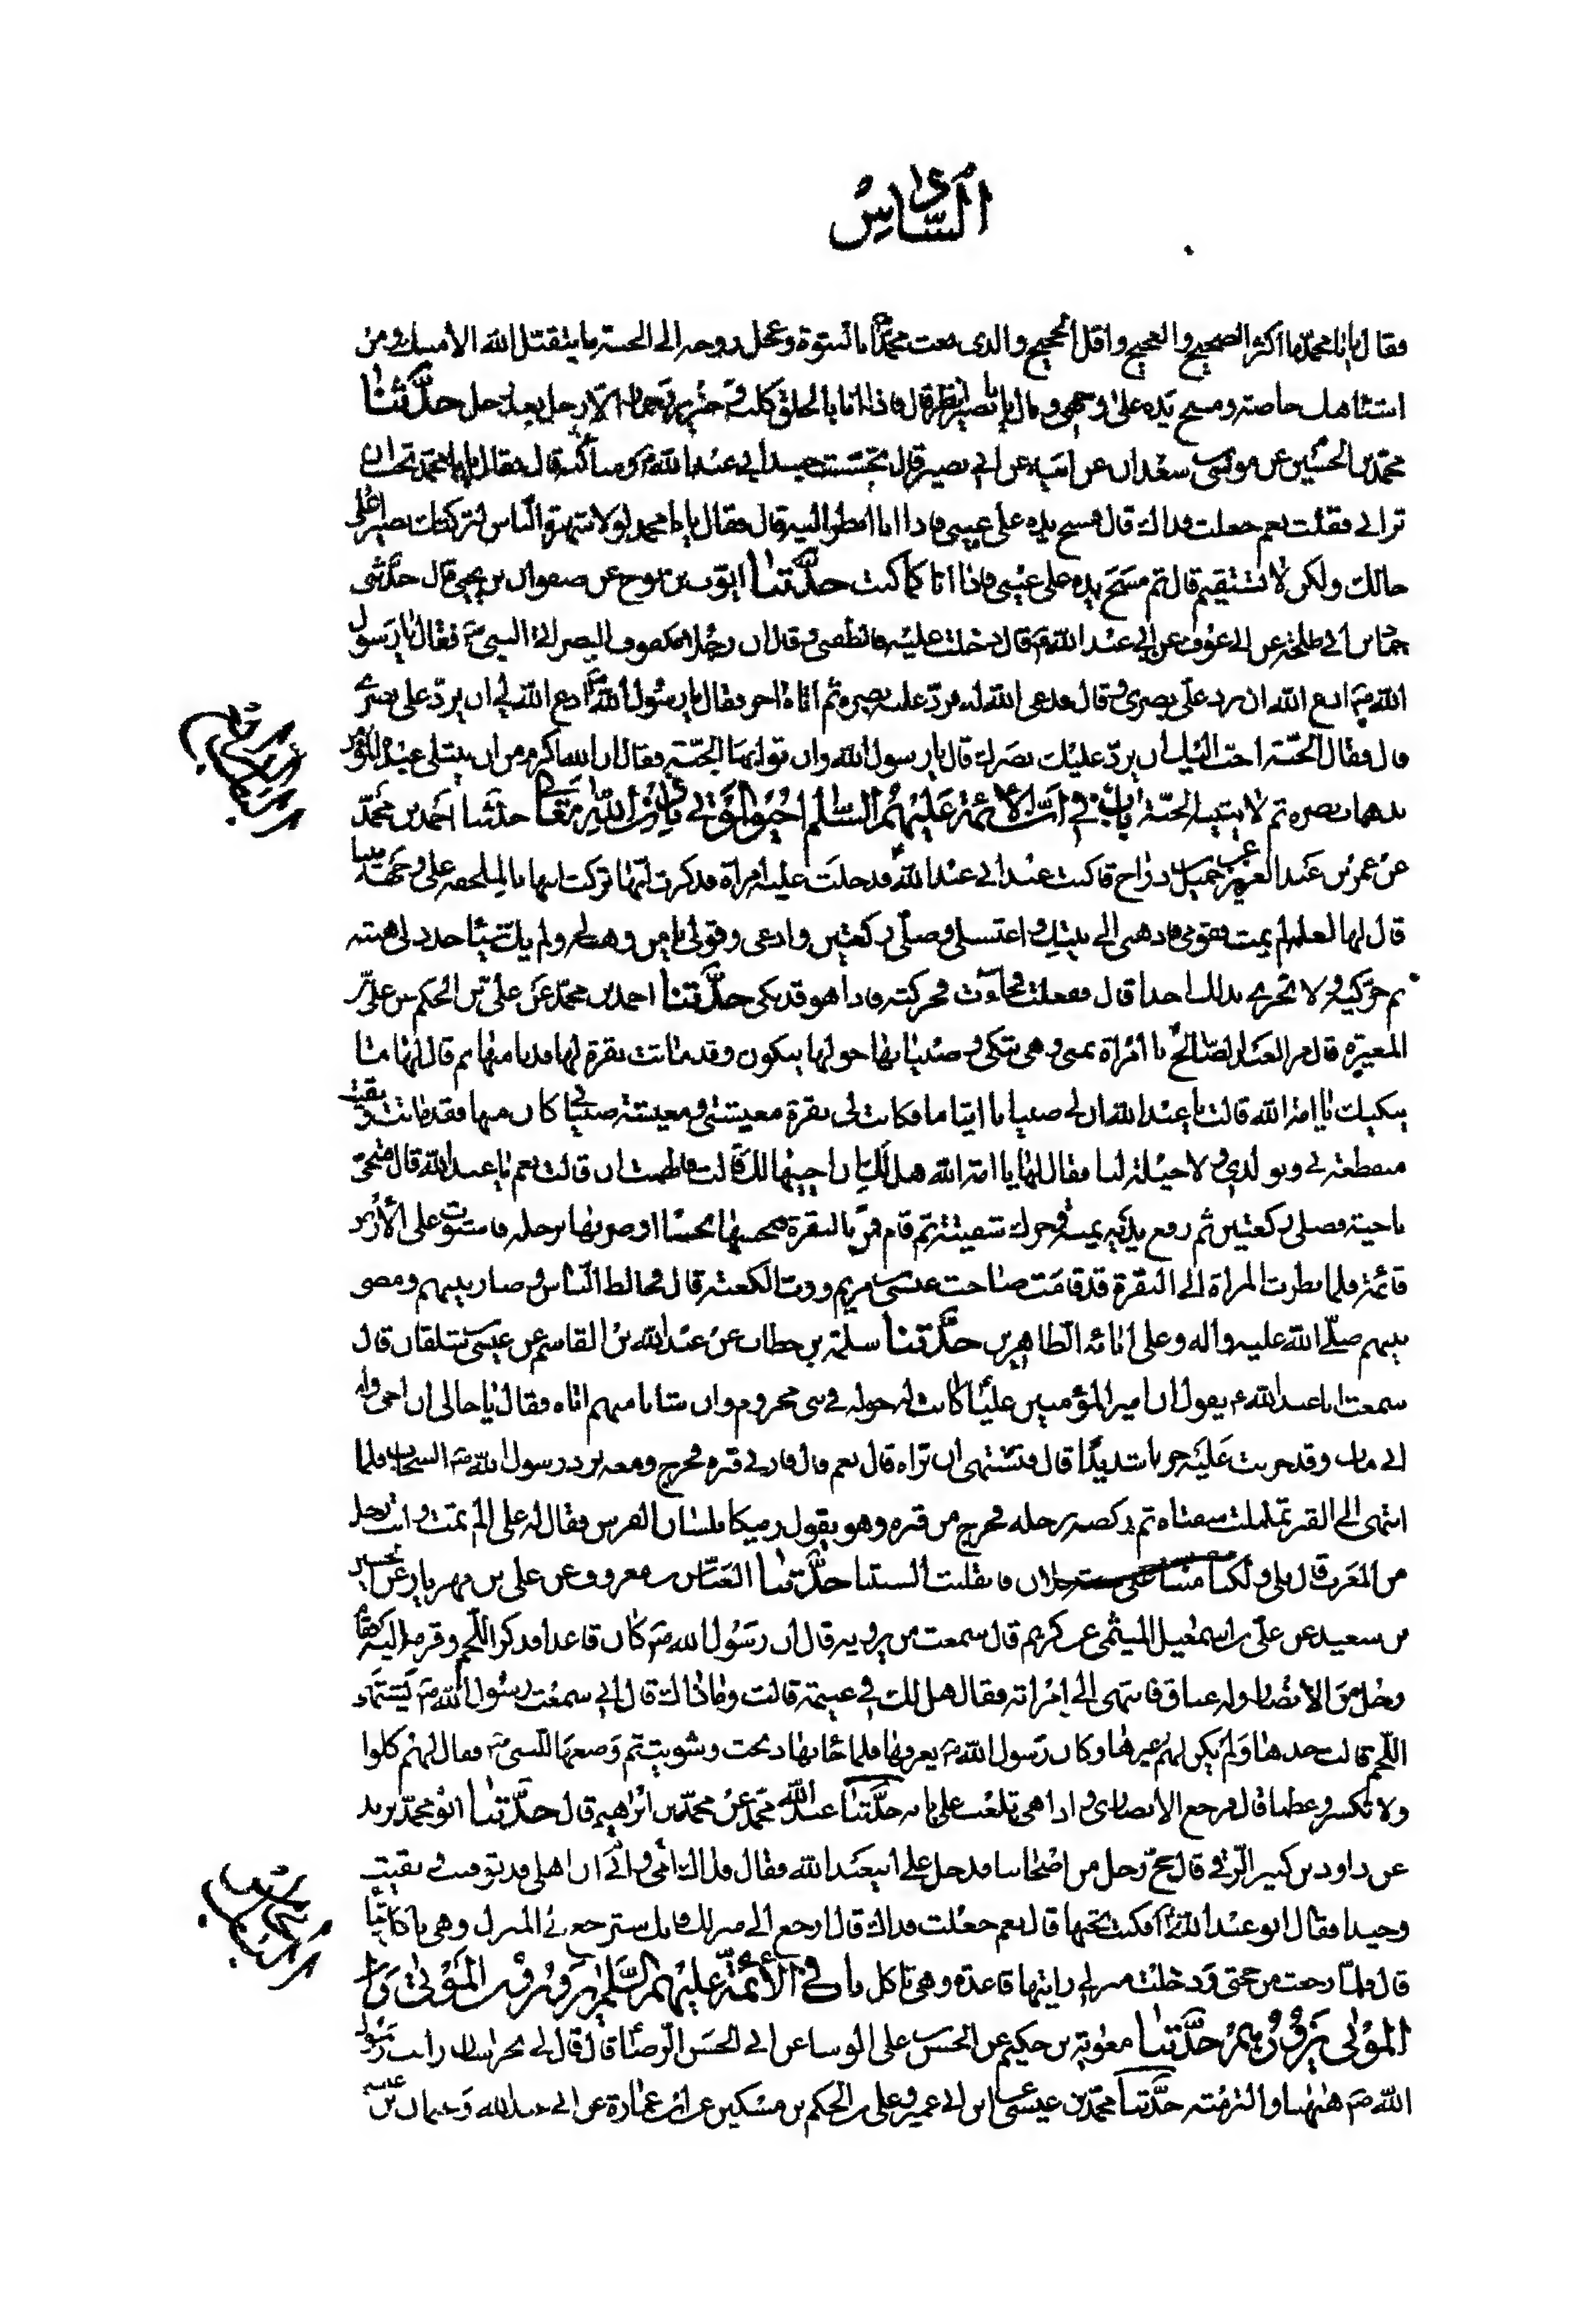 السادس
فقال يا با محمد ما اكثر الضجيج والعجيج واقل الحجيج والذى بعث محمدا بالنبوة وعجل روحه الى الجنة ما يتقبل الله الا منك ومن
اصحابك خاصة ومسح يده على وجهى وقال يا با بصير انظر قال فاذا انا بالخلق كلب وخنزير وحمار الا رجل بعد رجل حدثنا
محمد بن الحسين عن موسى بن سعدان عن ابى بصير قال تجسست جسد ابى عبد الله قال فقال يا با محمد تحب ان
ترانى فقلت نعم جعلت فداك قال فمسح يده على عينى فاذا انا انظر اليه قال فقال يا با محمد لولا شهرة الناس لتركتك بصيرا على
حالك ولكن لا تستقيم قال ثم مسح يده على عينى فاذا انا كما كنت حدثنا ايوب بن نوح عن صفوان بن يحيى قال حدثنى
حماد بن ابى طلحة عن ابى عوف عن ابى عبد الله قال دخلت عليه فالطفنى وقال ان رجلا مكفوف البصر اتى النبى ص فقال يا رسول
الله ادع الله ان يرد على بصرى قال فدعى الله له فرد عليه بصره ثم اتاه اخر فقال يا رسول الله ادع الله لى ان يرد على بصرى
قال فقال الجنة احب اليك ان يرد عليك بصرك قال يا رسول الله وان ثوابها الجنة فقال ان الله اكرم من ان يبتلى عبده المؤمن
بذهاب بصره ثم لا يثيبه الجنة باب فى ان الائمة عليهم السلام احيوا الموتى باذن الله تعالى حدثنا احمد بن محمد
عن عمر بن عبد العزيز عن جميل بن دراج قال كنت عند ابى عبد الله فدخلت عليه امراة فذكرت انها تركت ابنها بالملحفة على وجهه ميتا
قال لها لعله لم يمت فقومى فاذهبى الى بيتك واغتسلى وصلى ركعتين وادعى وقولى يا من وهبه لى ولم يك شيئا جدد لى هبته
ثم حركيه ولا تخبرى بذلك احدا قال ففعلت فجاءت فحركته فاذا هو قد بكى حدثنا احمد بن محمد عن على بن الحكم عن على بن
المغيرة قال مر العبد الصالح بامراة بمنى وهى تبكى وصبيانها حولها يبكون وقد ماتت بقرة لها فدنا منها ثم قال لها ما
يبكيك يا امة الله قالت يا عبد الله ان لى صبيانا ايتاما فكانت لى بقرة معيشتى ومعيشة صبيانى كان منها فقد ماتت وبقيت
منقطعة بى وبولدى ولا حيلة لنا فقال لها يا امة الله هل لك ان احييها لك قال فالهمت ان قالت نعم يا عبد الله قال فتنحى
ناحية فصلى ركعتين ثم رفع يديه يمنة وحرك شفتيه ثم قام فمر بالبقرة فنخسها نخسا او ضربها برجله فاستوت على الارض
قائمة فلما نظرت المراة الى البقرة قد قامت صاحت عيسى بن مريم ورب الكعبة قال فخالط الناس وصار بينهم ومضى
بينهم صلى الله عليه واله وعلى ابائه الطاهرين حدثنا سلمة بن خطاب عن عبد الله بن القاسم عن عيسى شلقان قال
سمعت ابا عبد الله ع يقول ان امير المؤمنين عليا كانت له خولة فى بنى مخزوم وان شابا منهم اتاه فقال يا خالى ان اخى وابن
ابى مات وقد حزنت عليه حزنا شديدا قال فتشتهى ان تراه قال نعم قال فارنى قبره فخرج ومعه برد رسول الله ص السحاب فلما
انتهى الى القبر تململت شفتاه ثم ركضه برجله فخرج من قبره وهو يقول رميكا بلسان الفرس فقال له على الم تمت وانت رجل
من العرب قال بلى ولكنا متنا على فانقلبت السنتنا حدثنا العباس بن معروف عن على بن مهزيار عن الحسين
بن سعيد عن على بن اسمعيل الميثمى عن كريم قال سمعت من يرويه قال ان رسول الله ص كان قاعدا فذكر اللحم وقرمه اليه فقام
رجل من الانصار وله عناق فانتهى الى امراته فقال هل لك فى غنيمة قالت وما ذاك قال انى سمعت رسول الله ص يشتهى
اللحم قالت خذها ولم يكن لهم غيرها وكان رسول الله ص يعرفها فلما جاء بها ذبحت وشويت ثم وضعها النبى ص فقال لهم كلوا
ولا تكسروا عظما قال فرجع الانصارى واذا هى تلعب على بابه حدثنا عبد الله بن محمد عن محمد بن ابراهيم قال حدثنا ابو محمد بريد
عن داود بن كثير الرقى قال حج رجل من اصحابنا فدخل على ابى عبد الله فقال فداك ابى وامى ان اهلى قد توفيت وبقيت
وحيدا فقال ابو عبد الله افكنت تحبها قال نعم جعلت فداك قال ارجع الى منزلك فانك سترجع الى المنزل وهى تاكل شيئا
قال فلما رجعت من حجتى ودخلت منزلى رايتها قاعدة وهى تاكل باب فى الائمة عليهم السلم انهم يزورون الموتى وان
الموتى يزورهم حدثنا معوية بن حكيم عن الحسن بن على الوشا عن ابى الحسن الرضا قال قال لى بخراسان رايت رسول
الله ص ههنا والتزمته حدثنا محمد بن عيسى عن ابن ابى عمير وعلى بن الحكم بن مسكين عن ابى عمارة عن ابى عبد الله وعثمان بن عيسى